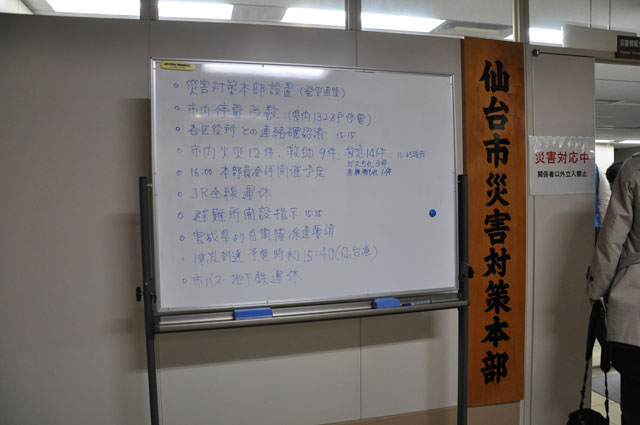 災害対策本部設置(発災直後)
市内停電多数(県内132万戸停電)
各区役所との連絡確認済 15:15
市内火災12件、救助9件、救急14件
ガスもれ 3件
16:00 本部員会議開催予定
JR全線運休
避難所開設指示 15:15
宮城県より自衛隊派遣要請
津波到達予想時刻15:40(仙台港)
市バス・地下鉄運休
仙台市災害対策本部
災害対応中
関係者以外立入禁止